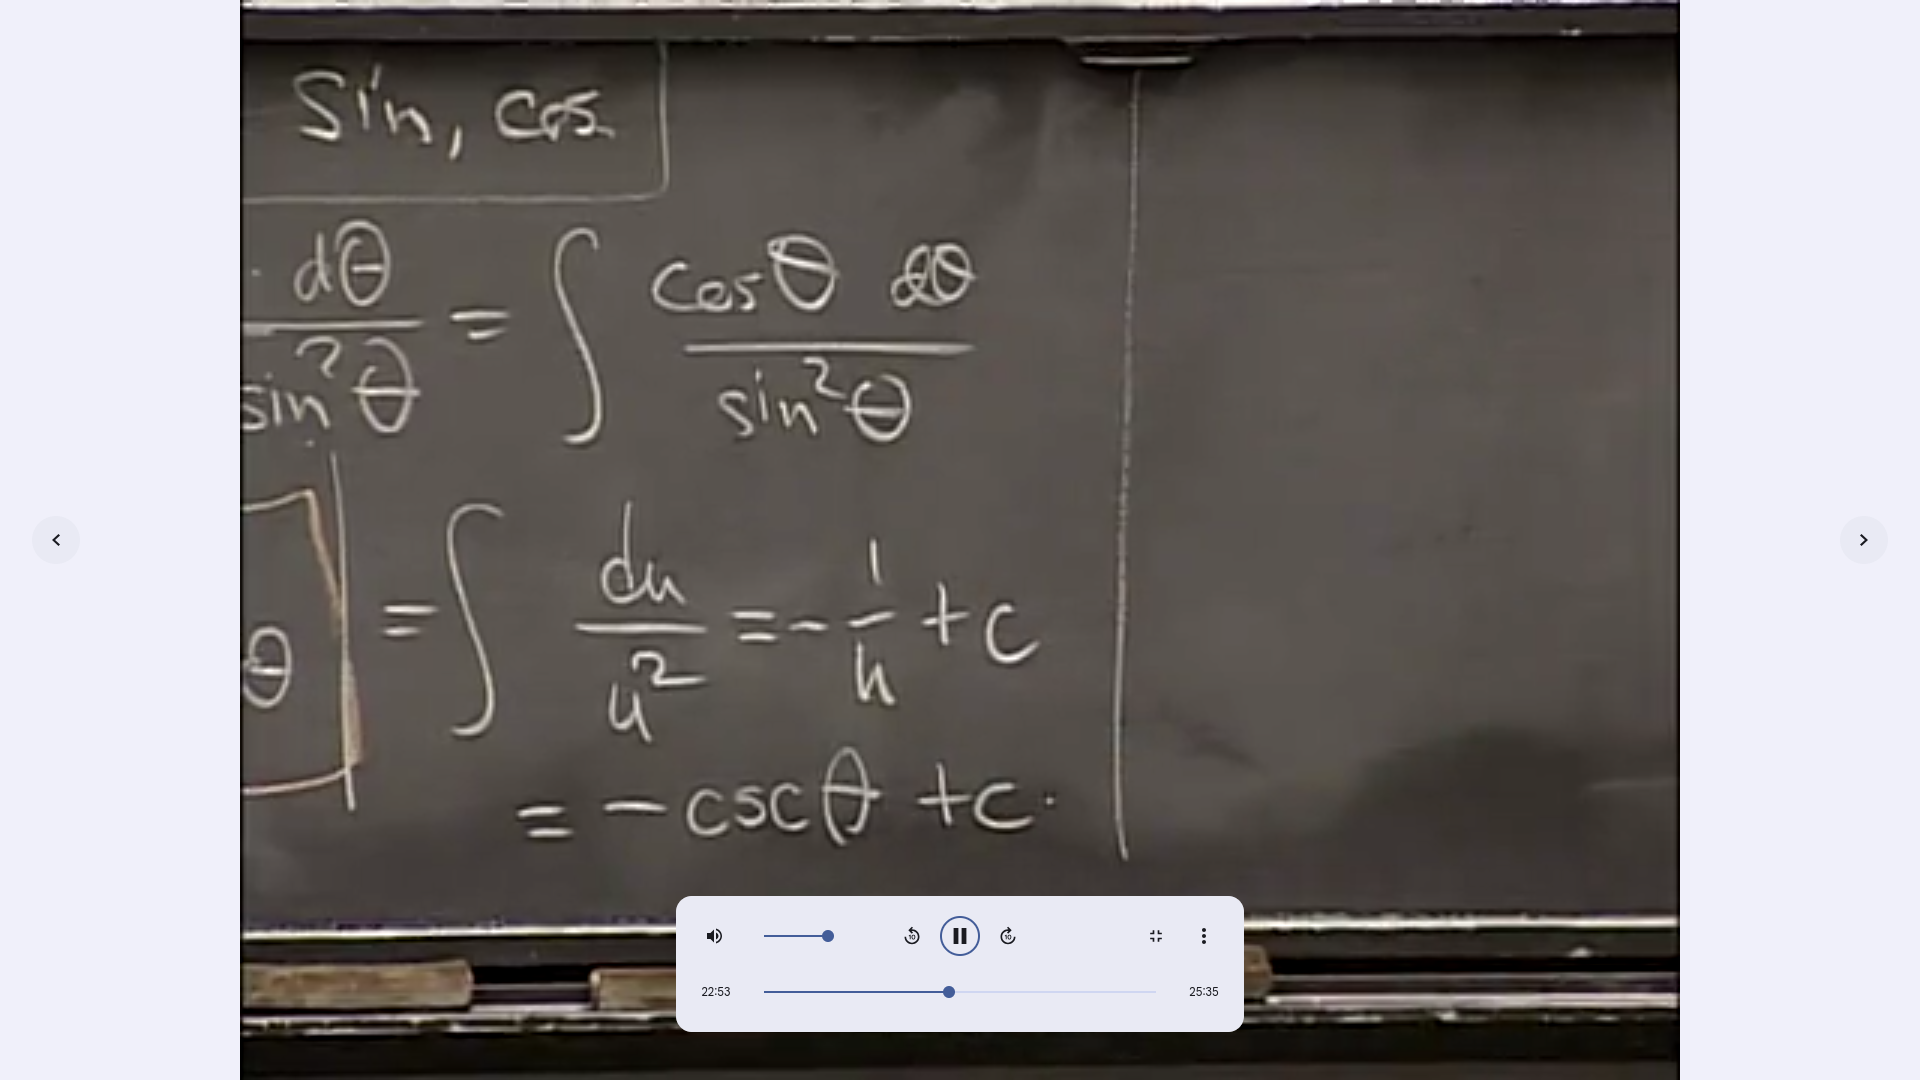 sin, cos
dθ / sin²θ = ∫ cosθ dθ / sin²θ
θ = ∫ du / u² = - 1 / u + c
= - cscθ + c.
10 10
22:53 25:35